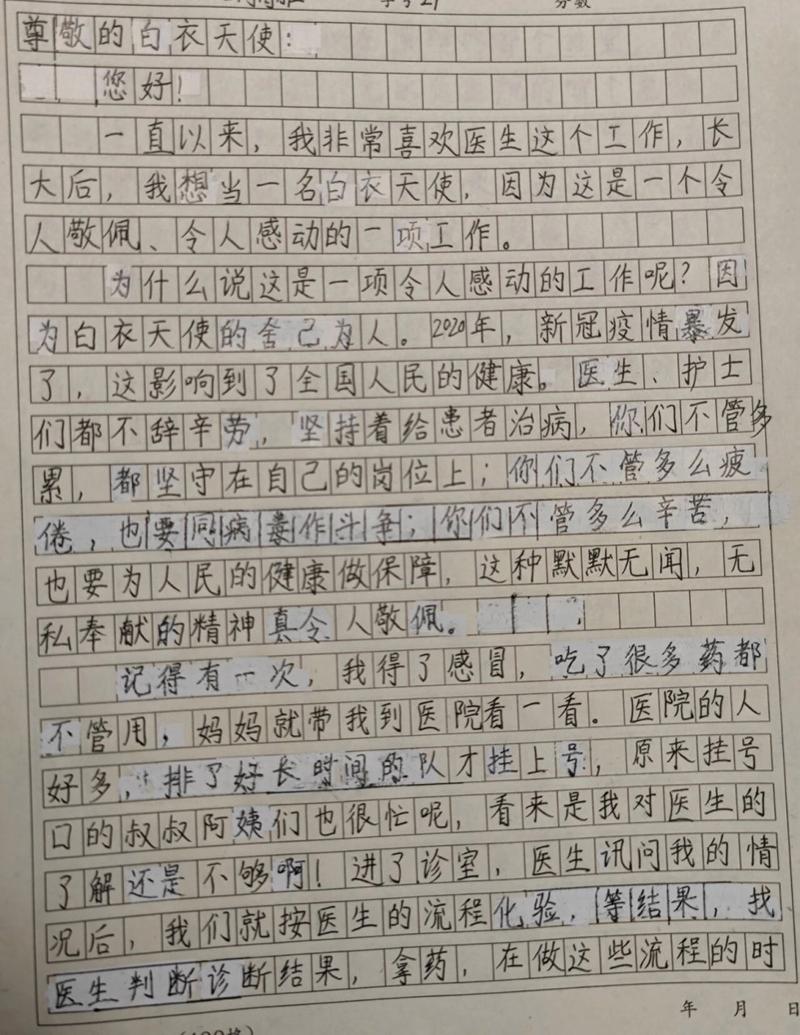 学号21 分数
尊敬的白衣天使：
您好！
一直以来，我非常喜欢医生这个工作，长
大后，我想当一名白衣天使，因为这是一个令
人敬佩、令人感动的一项工作。
为什么说这是一项令人感动的工作呢？因
为白衣天使的舍己为人。2020年，新冠疫情暴发
了，这影响到了全国人民的健康。医生、护士
们都不辞辛劳，坚持着给患者治病，你们不管多
累，都坚守在自己的岗位上；你们不管多么疲
倦，也要同病毒作斗争；你们不管多么辛苦，
也要为人民的健康做保障，这种默默无闻，无
私奉献的精神真令人敬佩。
记得有一次，我得了感冒，吃了很多药都
不管用，妈妈就带我到医院看一看。医院的人
好多，排了好长时间的队才挂上号，原来挂号
口的叔叔阿姨们也很忙呢，看来是我对医生的
了解还是不够啊！进了诊室，医生讯问我的情
况后，我们就按医生的流程化验，等结果，找
医生判断诊断结果，拿药，在做这些流程的时
年 月 日